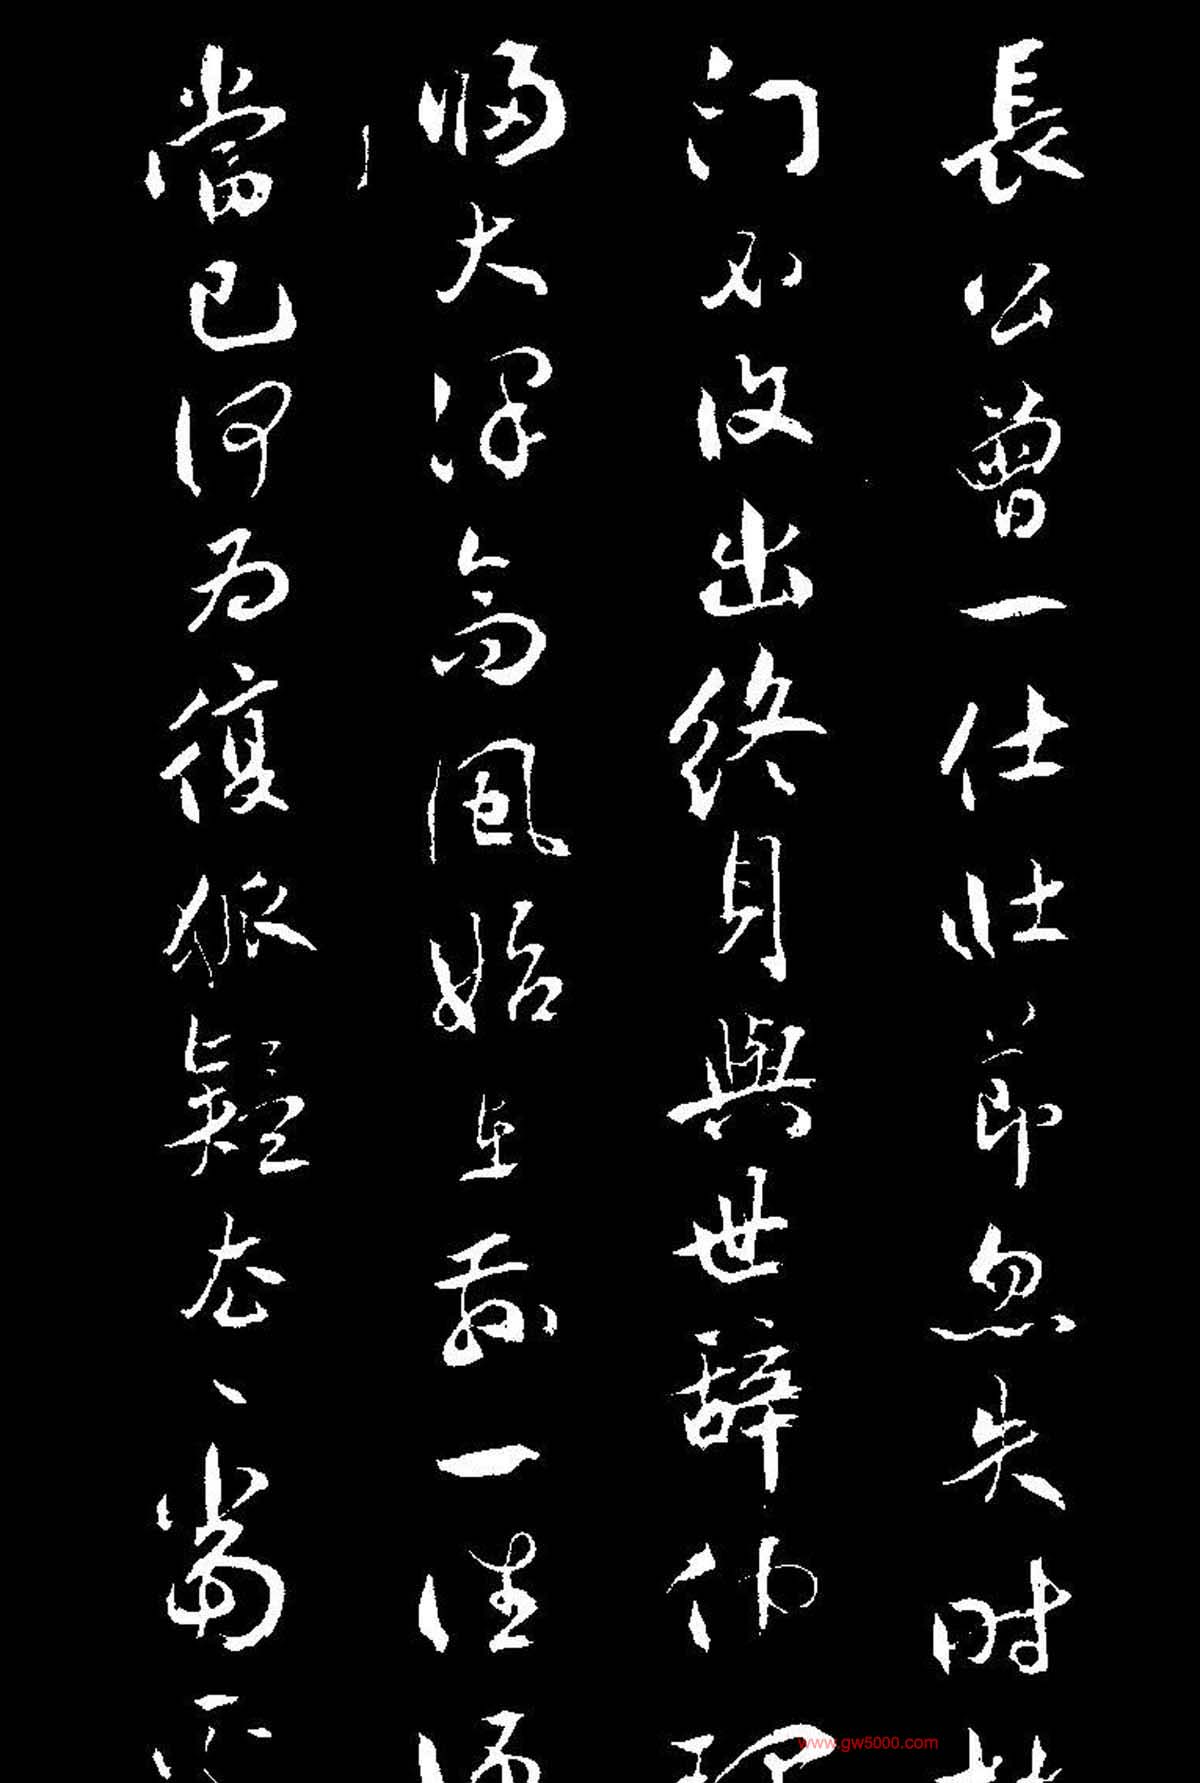 長公曾一仕壯節忽失時
門不復出終身與世辭仲
歸大澤高風始在茲一往
當已何為復狐疑去去當
www.gw5000.com